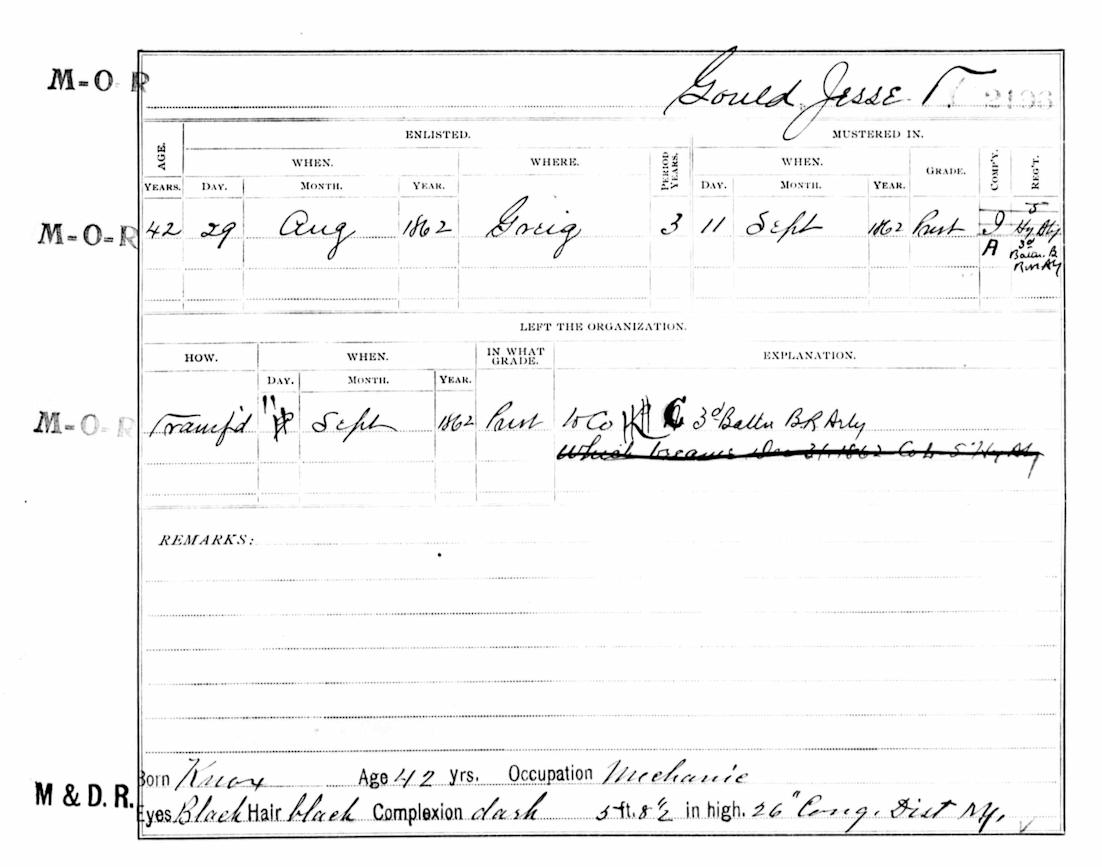 M-O-R
Gould, Jesse T. 2196
AGE. ENLISTED. PERIOD YEARS. MUSTERED IN.
WHEN. WHERE. WHEN. GRADE. COMP'Y. REG'T.
YEARS. DAY. MONTH. YEAR. DAY. MONTH. YEAR.
5
M-O-R 42 29 Aug 1862 Greig 3 11 Sept 1862 Privt I Hy Aty
A 3d
Battn. B
R.R Ay
LEFT THE ORGANIZATION.
HOW. WHEN. IN WHAT GRADE. EXPLANATION.
DAY. MONTH. YEAR.
M-O-R Transf'd 11 Sept 1862 Privt to Co 3d Battn B R Arty
Which became Dec 31, 1862 Co 5" Hy Aty
REMARKS:
Born Knox Age 42 yrs. Occupation Mechanic
M & D. R. Eyes Black Hair black Complexion dark 5 ft. 8 1/2 in high. 26" Cong. Dist NY.